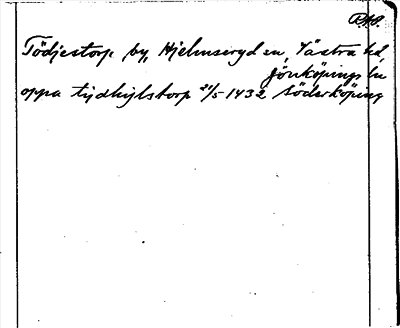 RAp.
Tödjestorp by, Hjelmseryd sn, Västra hd,
Jönköpings län
oppa tydhylstorp 21/5 1432 Söderköping